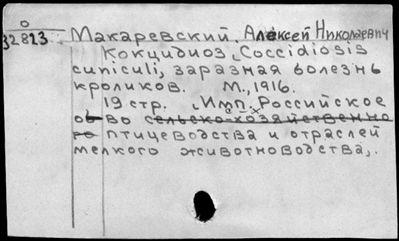 О
32823
Макаревский, Алексей Николаевич
Кокцидиоз, Coccidiosis
cuniculi, заразная болезнь
кроликов. М., 1916.
19 стр. (Имп. Российское
об-во сельско-хозяйственно
го птицеводства и отраслей
мелкого животноводства).